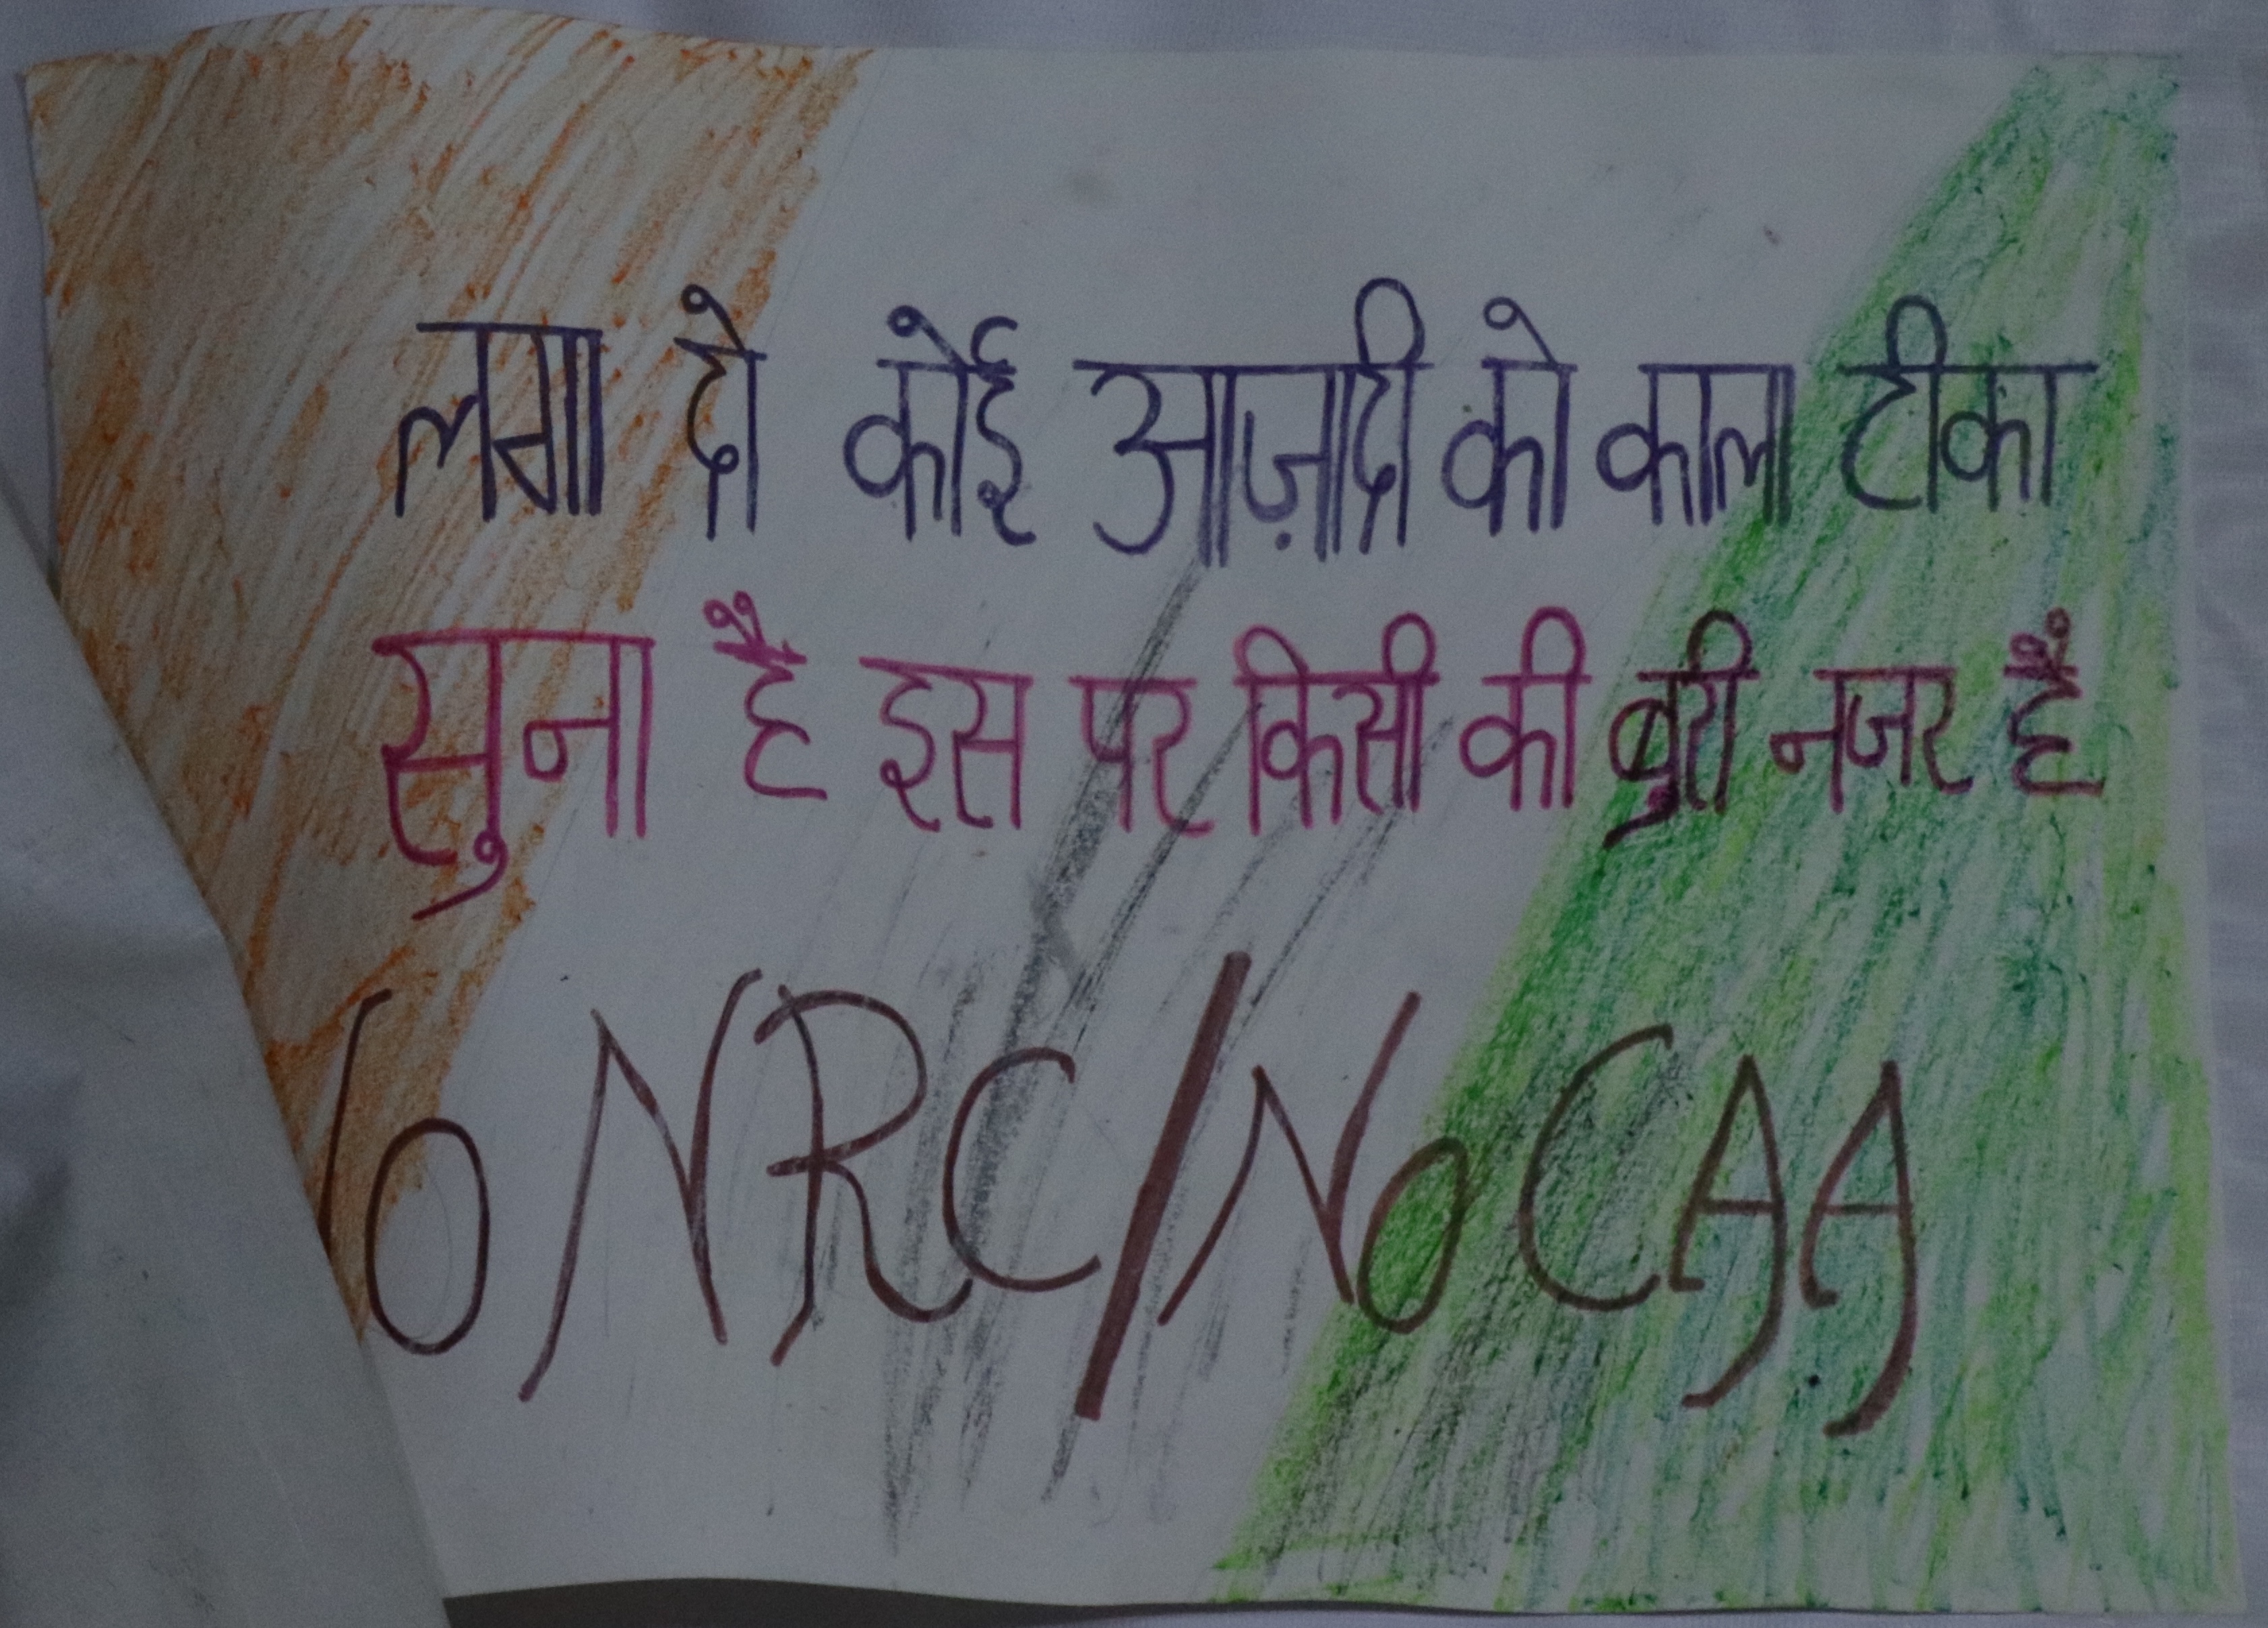 लगा दो कोई आज़ादी को काला टीका
सुना है इस पर किसी की बुरी नजर है
No NRC/No CAA